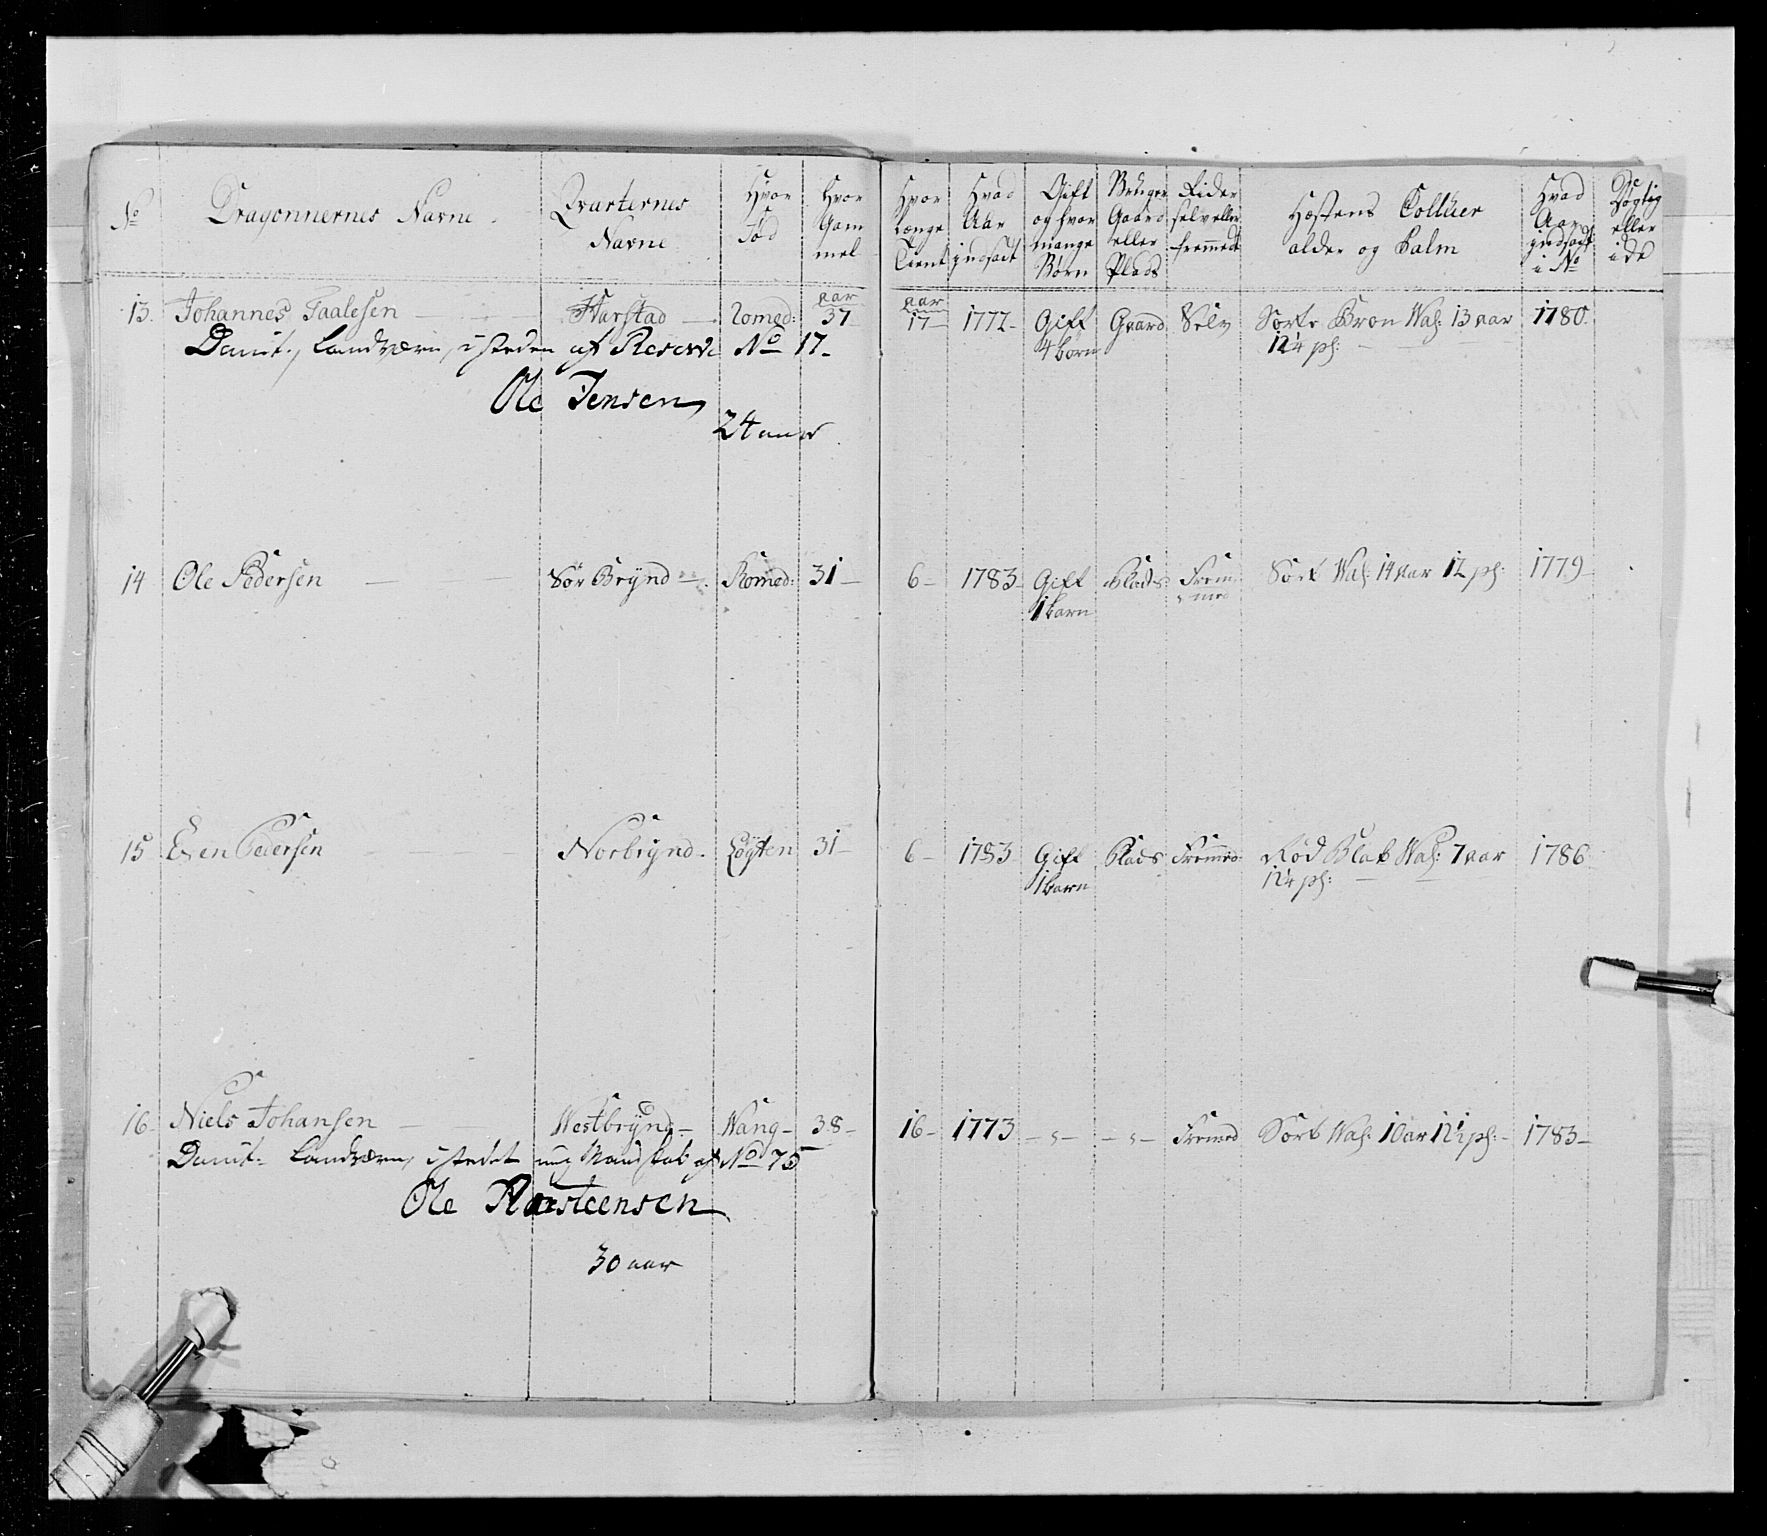 No Dragonnernes Navne Qvarternes Navne Hvor Fød Hvor Gam mel Hvor Længe Tient Hvad Aar indsadt Gift og hvor mange Børn Bruger Gaard eller Plads Rider selv eller fremmedt Hæstens Colluer alder og Salm Hvad Aar indsadt i No Dygtig eller i de
13. Johannes Taalesen Harstad Romed: aar 37 aar 17 1772 Gift Gaard Selv Sorte Bron Wal: 13 aar 1780
4 børn 12¼ ph:
Dimit: Landværn, i steden af Reserve No 17
Ole Jensen
24 aar
14 Ole Pedersen Sør Brÿnd Romed: 31 6 1783 Gift Plads Frem Sort Wal: 14 aar 12 ph: 1779
1 barn med
15 Even Pedersen Norbrÿnd Løÿten 31 6 1783 Gift Plads Fremed Rød Blak Wal: 7 aar 1786
1 barn 12¼ ph:
16 Niels Johansen Westbrÿnd Wang 38 16 1773 Fremed Sort Wal: 10 ar 12½ ph: 1783
Dimit: Landværn, i stedet ung Mandskab af No 75
Ole Torsteensen
30 aar